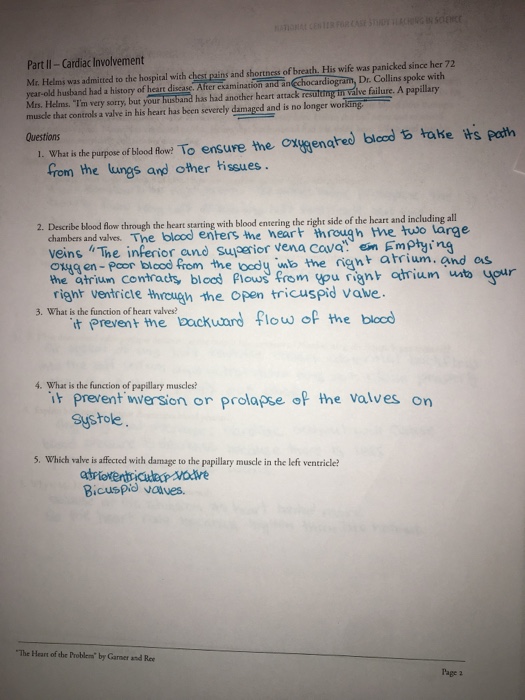 NATIONAL CENTER FOR CASE STUDY TEACHING IN SCIENCE
Part II – Cardiac Involvement
Mr. Helms was admitted to the hospital with chest pains and shortness of breath. His wife was panicked since her 72
year-old husband had a history of heart disease. After examination and an echocardiogram, Dr. Collins spoke with
Mrs. Helms. "I'm very sorry, but your husband has had another heart attack resulting in valve failure. A papillary
muscle that controls a valve in his heart has been severely damaged and is no longer working.
Questions
1. What is the purpose of blood flow? To ensure the oxygenated blood to take it's path
from the lungs and other tissues.
2. Describe blood flow through the heart starting with blood entering the right side of the heart and including all
chambers and valves. The blood enters the heart through the two large
veins "The inferior and superior vena cava." Emptying
oxygen-poor blood from the body into the right atrium. and as
the atrium contracts, blood flows from you right atrium into your
right ventricle through the open tricuspid valve.
3. What is the function of heart valves?
it prevent the backward flow of the blood
4. What is the function of papillary muscles?
it prevent inversion or prolapse of the valves on
systole.
5. Which valve is affected with damage to the papillary muscle in the left ventricle?
atrioventricular valve
Bicuspid valves.
"The Heart of the Problem" by Garner and Ree
Page 2